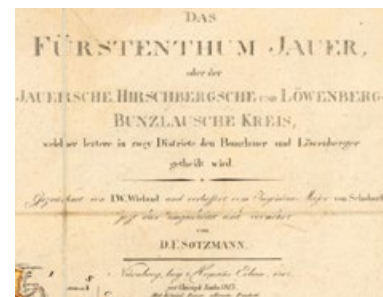 DAS
FÜRSTENTHUM JAUER,
oder der
JAUERSCHE, HIRSCHBERGSCHE und LÖWENBERG-
BUNZLAUSCHE KREIS,
welcher letztere in zwey Districte den Bunzlauer und Löwenberger
getheilt wird.
Gezeichnet von I.W. Wieland und verbessert vom Ingenieur Major von Schubart
jezt neu umgearbeitet und vermehrt
von
D.F. SOTZMANN.
Nürnberg, bey Homanns Erben,